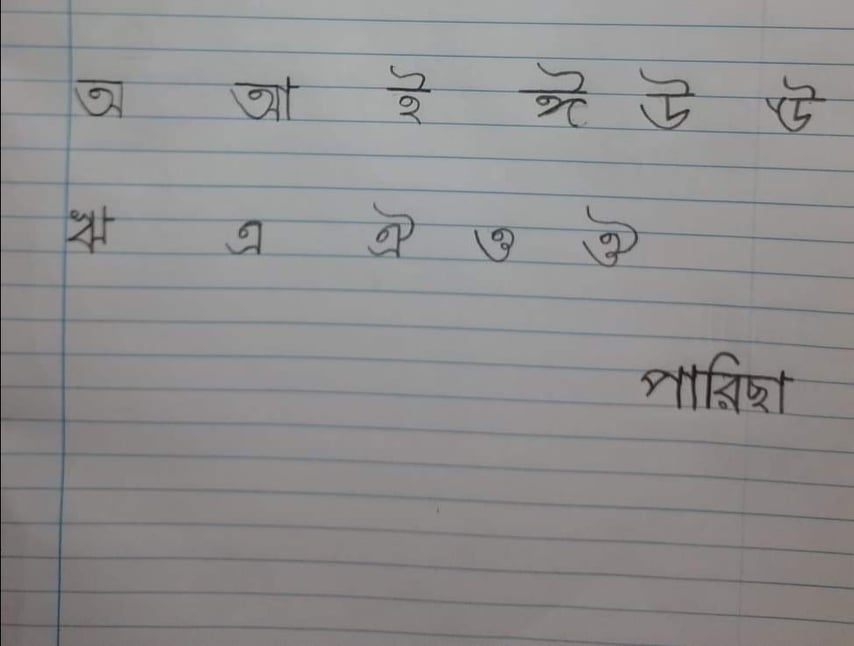 অ আ ই ঈ উ ঊ
ঋ এ ঐ ও ঔ
পারিছা